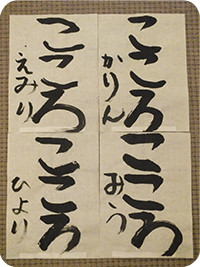 こころ
かりん
こころ
えみり
こころ
みう
こころ
ひより